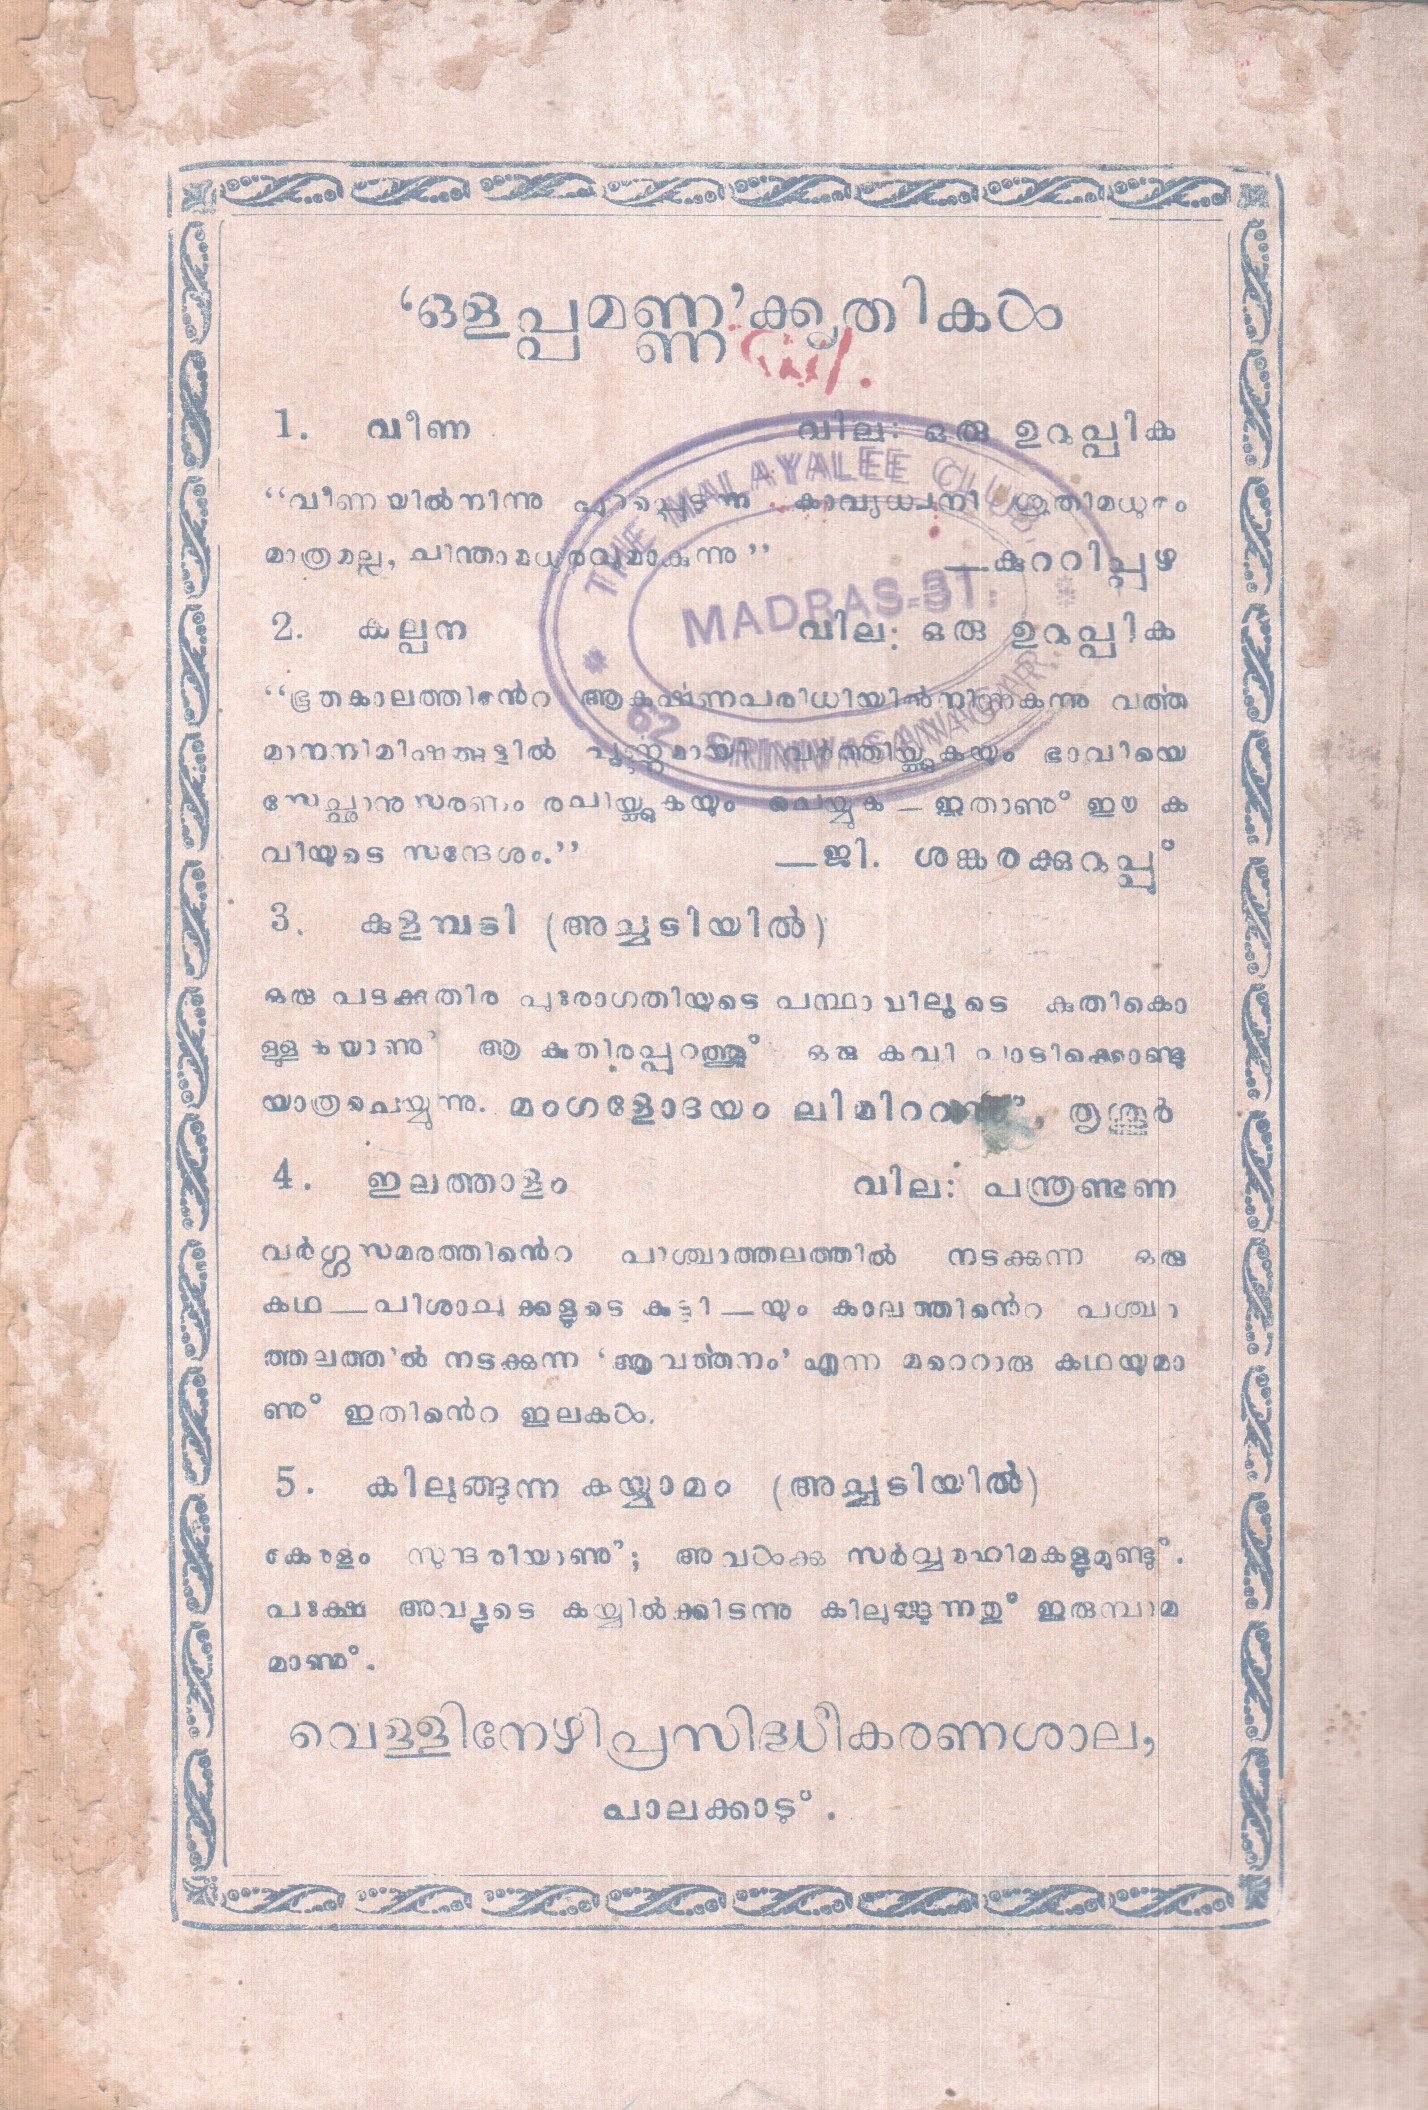 ‘ഒളപ്പമണ്ണ’ക്കൃതികൾ
1. വീണ വില: ഒരു ഉറുപ്പിക
“വീണയിൽനിന്നു പുറപ്പെടുന്ന കാവ്യധ്വനി ശ്രുതിമധുരം
മാത്രമല്ല, ചിന്താമധുരവുമാകുന്നു” —കുററിപ്പുഴ
2. കല്പന വില: ഒരു ഉറുപ്പിക
“ഭൂതകാലത്തിൻെറ ആകൎഷണപരിധിയിൽനിന്നകന്നു വൎത്ത
മാനനിമിഷങ്ങളിൽ പൂൎണ്ണമായി വർത്തിയ്ക്കുകയും ഭാവിയെ
സ്വേച്ഛാനുസരണം രചിയ്ക്കുകയും ചെയ്യുക—ഇതാണു് ഈ ക
വിയുടെ സന്ദേശം.” —ജി. ശങ്കരക്കുറുപ്പ്
3. കുളമ്പടി (അച്ചടിയിൽ)
ഒരു പടക്കുതിര പുരോഗതിയുടെ പന്ഥാവിലൂടെ കുതികൊ
ള്ളുകയാണു് ആ കുതിരപ്പുറത്തു് ഒരു കവി പാടിക്കൊണ്ടു
യാത്രചെയ്യുന്നു. മംഗളോദയം ലിമിററഡ്", തൃശ്ശൂർ
4. ഇലത്താളം വില: പന്ത്രണ്ടണ
വർഗ്ഗസമരത്തിൻെറ പശ്ചാത്തലത്തിൽ നടക്കുന്ന ഒരു
കഥ—പിശാചുക്കളുടെ കുട്ടി—യും കാലത്തിൻെറ പശ്ചാ
ത്തലത്തിൽ നടക്കുന്ന ‘ആവൎത്തനം’ എന്ന മറെറാരു കഥയുമാ
ണു് ഇതിൻെറ ഇലകൾ.
5. കിലുങ്ങുന്ന കയ്യാമം (അച്ചടിയിൽ)
കേരളം സുന്ദരിയാണു്; അവൾക്കു സർവ്വമഹിമകളുമുണ്ടു്.
പക്ഷേ അവളുടെ കയ്യിൽക്കിടന്നു കിലുങ്ങുന്നതു് ഇരുമ്പാമ
മാണു്.
വെള്ളിനേഴിപ്രസിദ്ധീകരണശാല,
പാലക്കാടു്.
THE MALAYALEE CLUB,
MADRAS-31.
62 SRINIVASANAGAR.